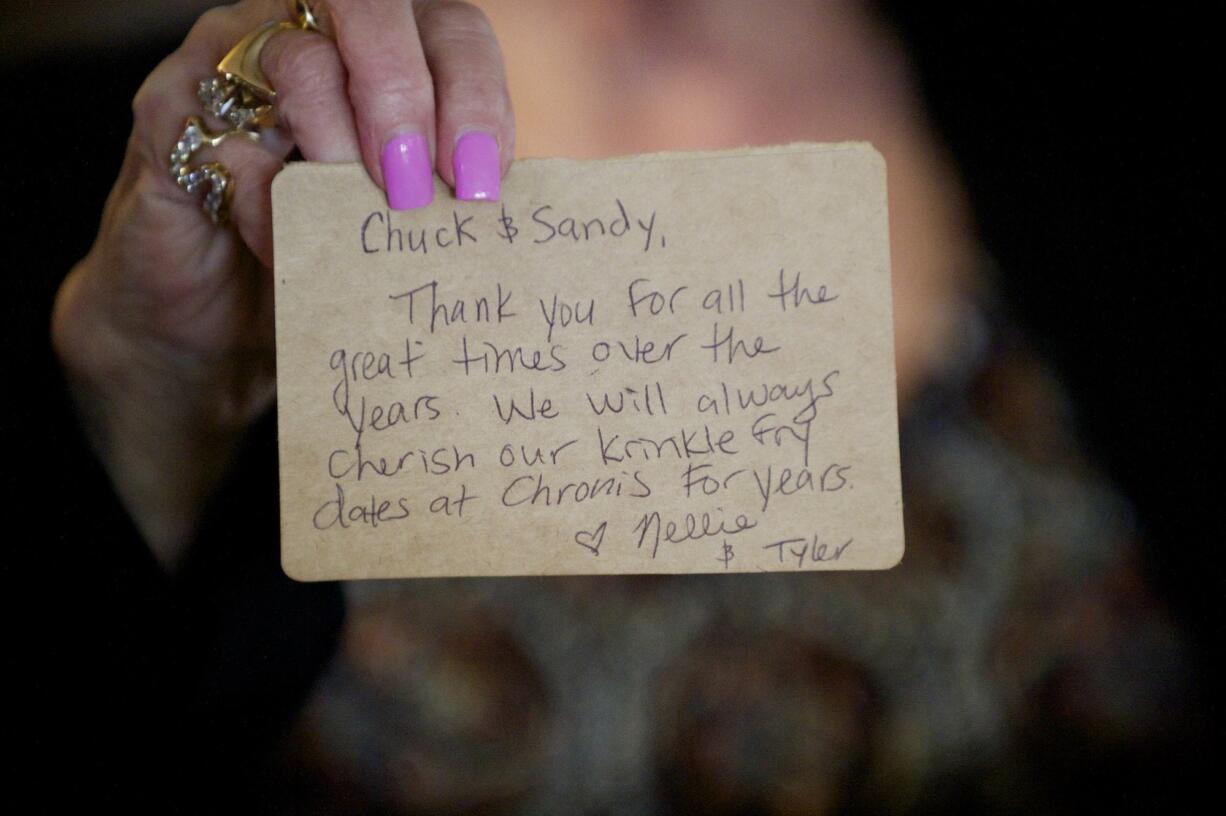 Chuck & Sandy,
Thank you for all the
great times over the
years. We will always
cherish our krinkle fry
dates at Chronis for years.
♡ Nellie
& Tyler